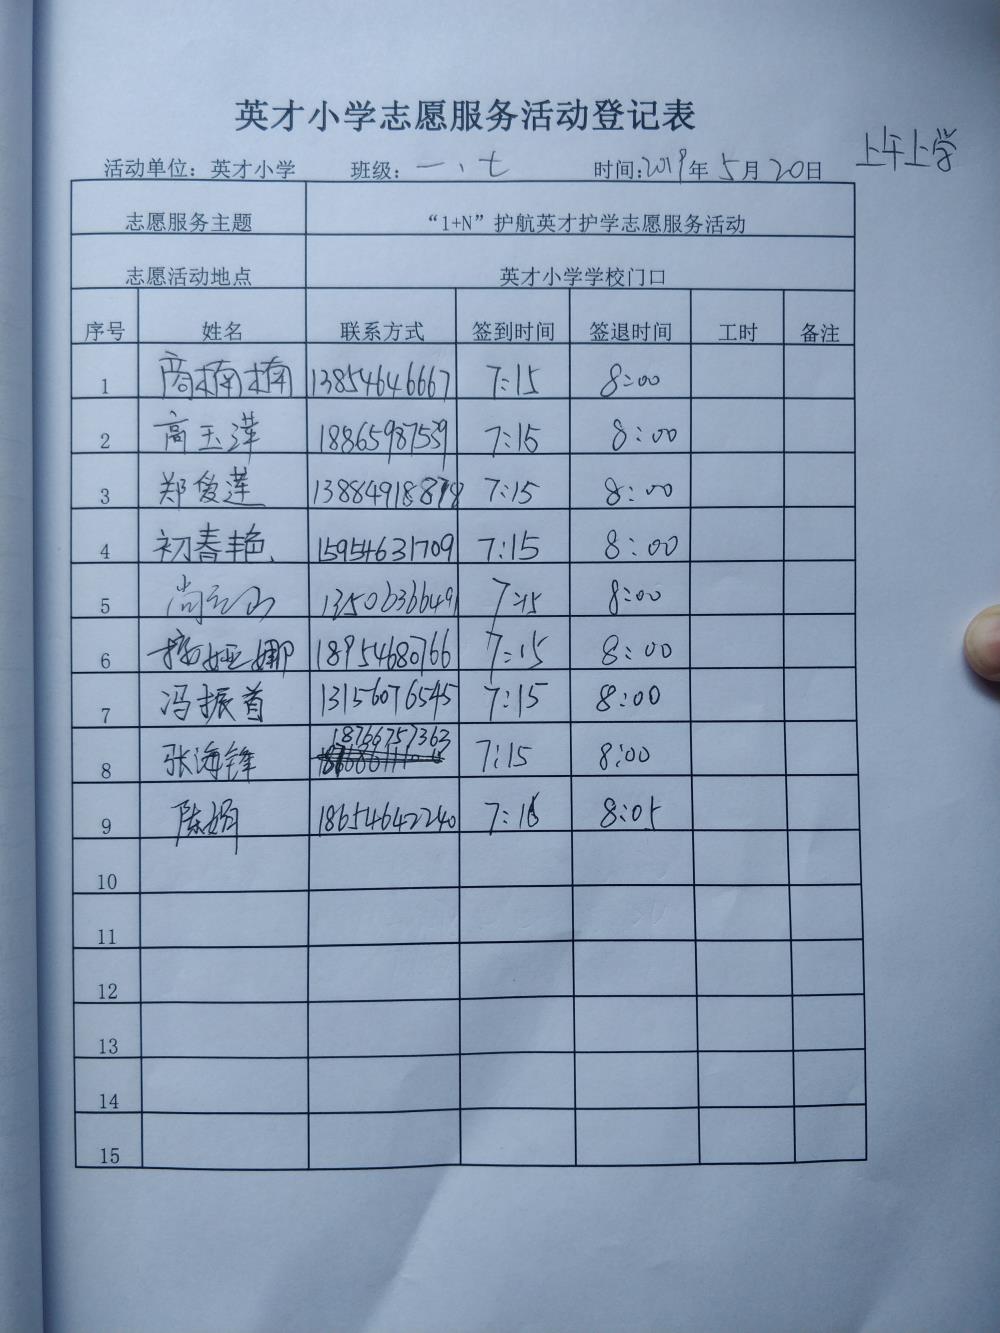 英才小学志愿服务活动登记表
上午上学
活动单位：英才小学 班级：一、七 时间:2019年5月20日
志愿服务主题 “1+N”护航英才护学志愿服务活动
志愿活动地点 英才小学学校门口
序号 姓名 联系方式 签到时间 签退时间 工时 备注
1 商楠楠 13854646667 7:15 8:00
2 高玉萍 18865987559 7:15 8:00
3 郑俊莲 7:15 8:00
4 初春艳 15954631709 7:15 8:00
5 13506366491 7:15 8:00
6 娅娜 18954680766 7:15 8:00
7 冯振首 13156076545 7:15 8:00
8 张海锋 18766757363 7:15 8:00
9 陈娟 18654642240 7:16 8:05
10
11
12
13
14
15